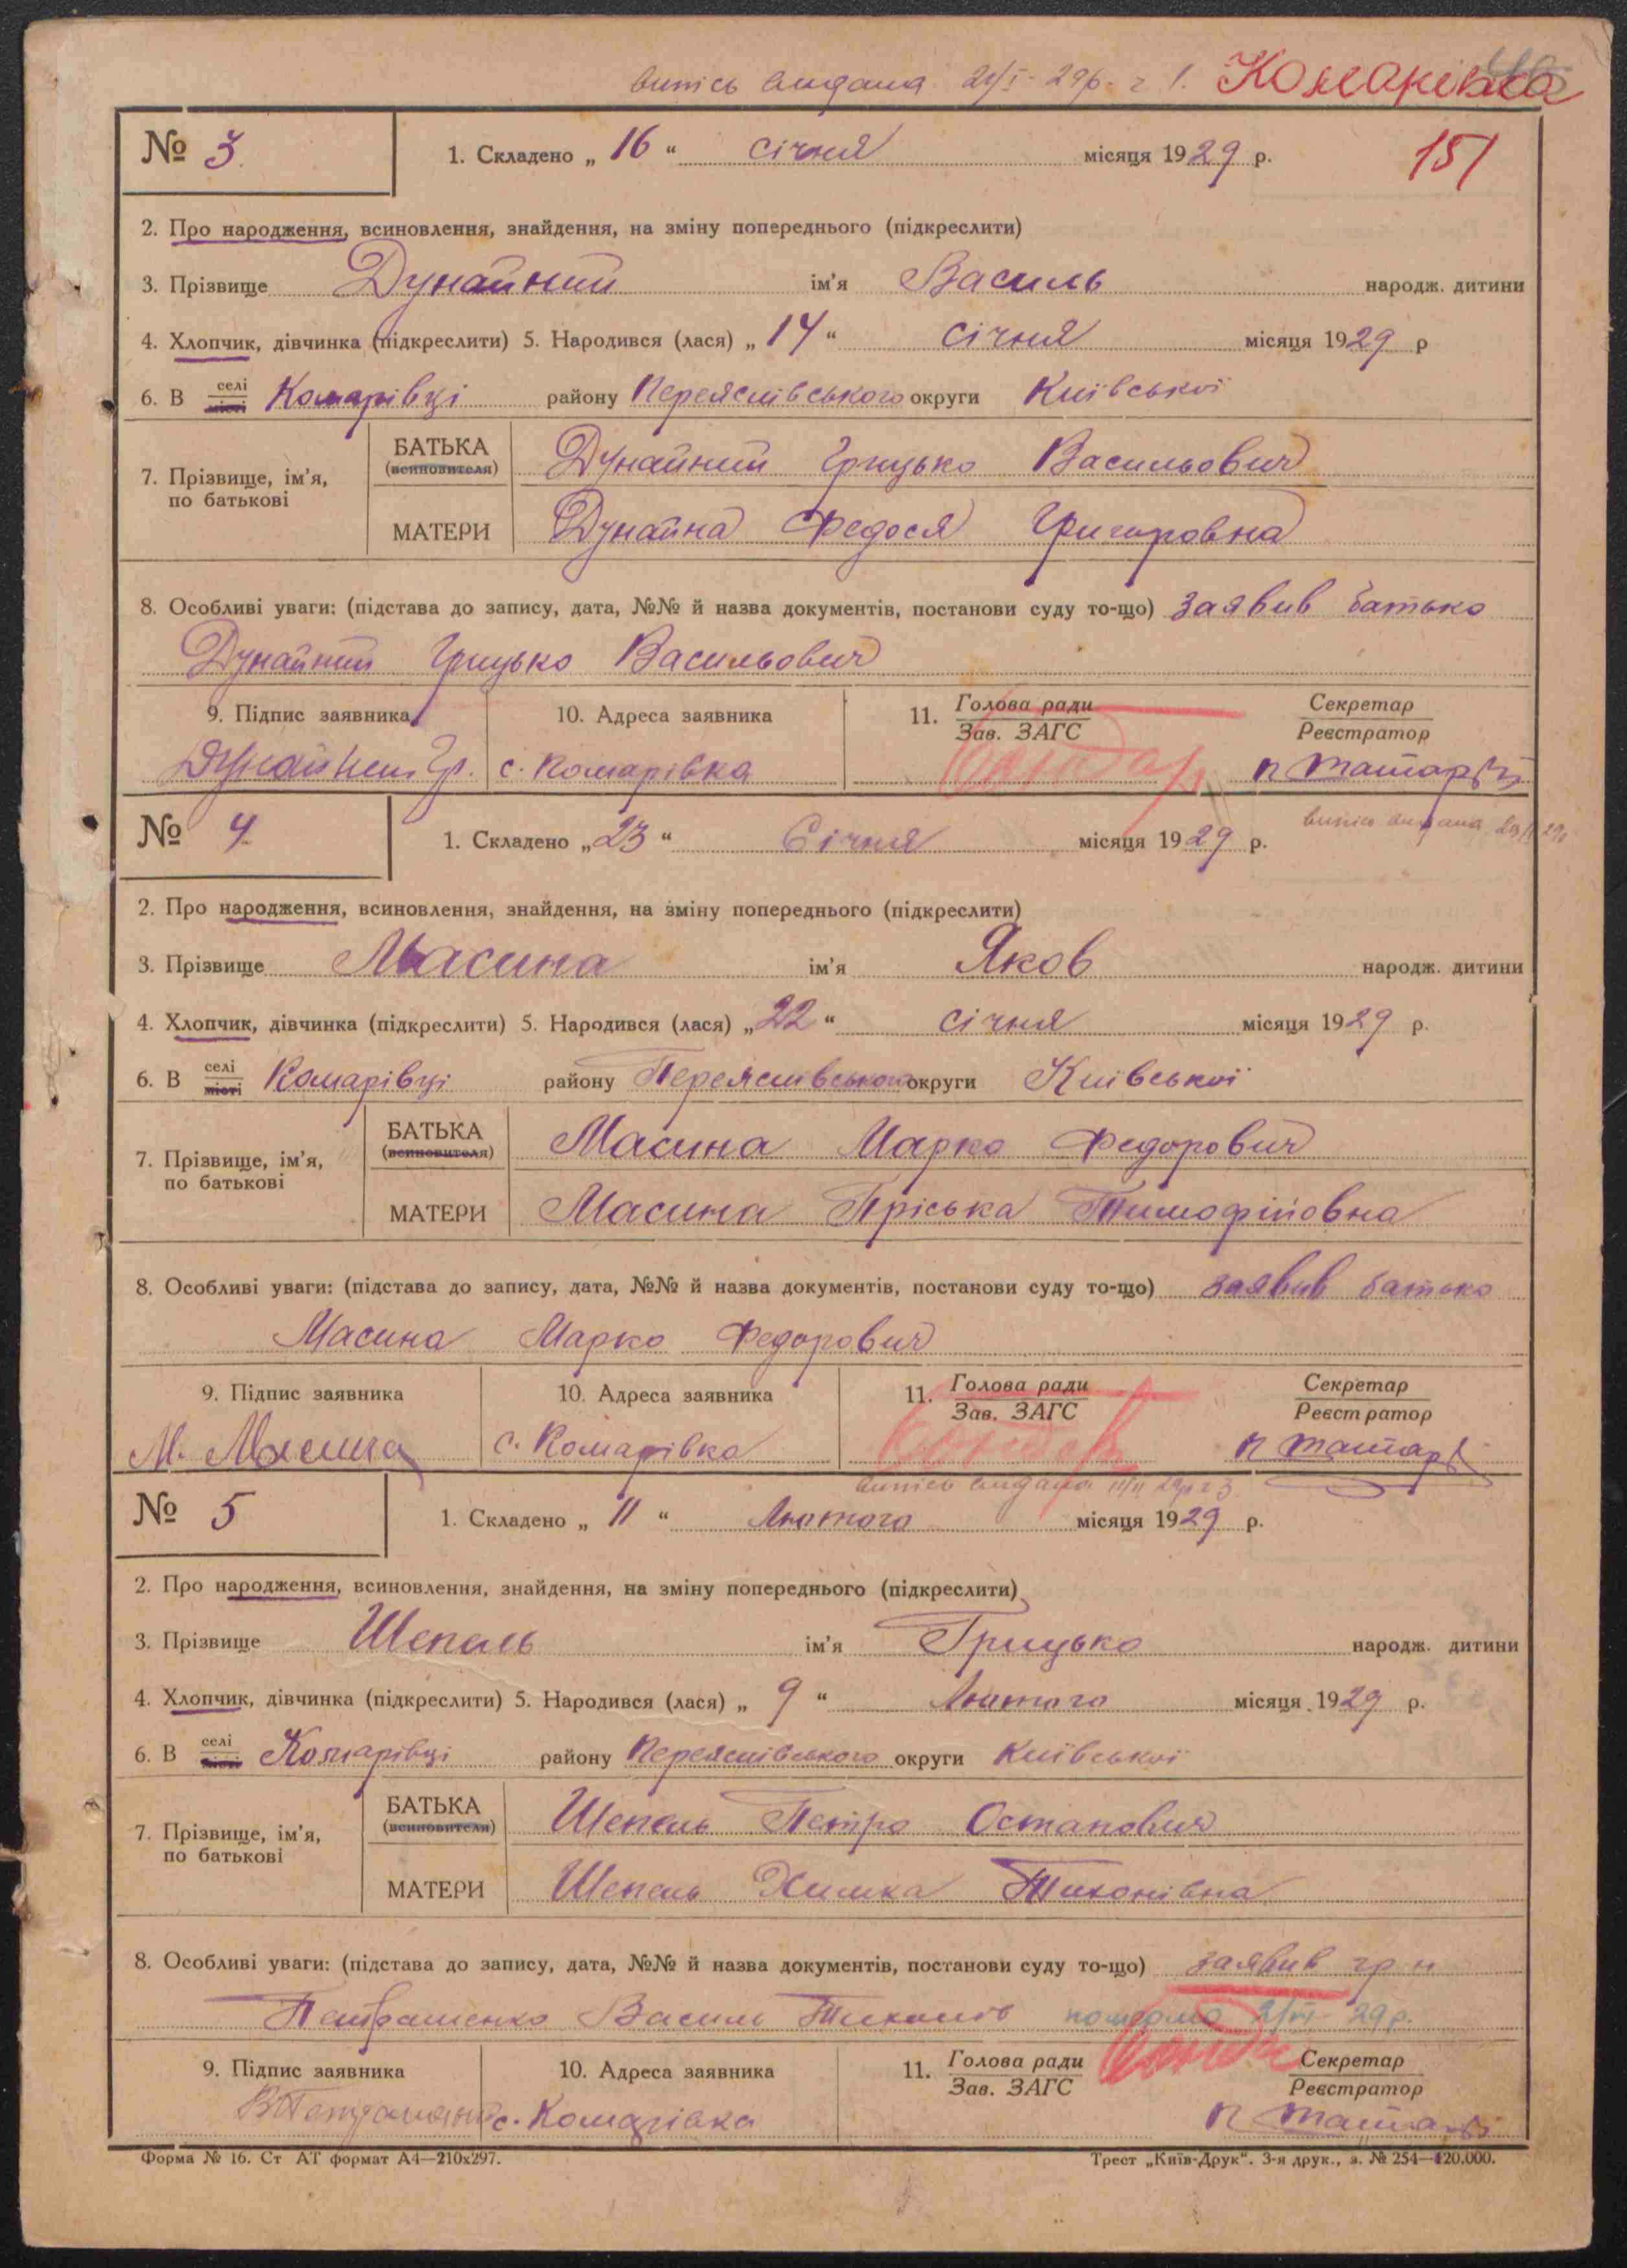 випісь видана 21/I-29р. ч 1. Комарівка
№ 3. 1. Складено „ 16 “ січня місяця 1929 р. 151
2. Про народження, всиновлення, знайдення, на зміну попереднього (підкреслити)
3. Прізвище Дунайний ім'я Василь народж. дитини
4. Хлопчик, дівчинка (підкреслити) 5. Народився (лася) „ 14 “ січня місяця 1929 р
6. В селі місті Комарівці району Переяслівського округи Київської
7. Прізвище, ім'я, по батькові БАТЬКА (всиновителя) Дунайний Грицько Васильович
МАТЕРИ Дунайна Федося Григоровна
8. Особливі уваги: (підстава до запису, дата, №№ й назва документів, постанови суду то-що) заявив батько
Дунайний Грицько Васильович
9. Підпис заявника 10. Адреса заявника 11. Голова ради Зав. ЗАГС Секретар Реєстратор
Дунайний Гр. с. Комарівка
випісь видана
№ 4 1. Складено „ 23 “ Січня місяця 1929 р.
2. Про народження, всиновлення, знайдення, на зміну попереднього (підкреслити)
3. Прізвище Масина ім'я Яков народж. дитини
4. Хлопчик, дівчинка (підкреслити) 5. Народився (лася) „ 22 “ січня місяця 1929 р.
6. В селі місті Комарівці району Переяслівського округи Київської
7. Прізвище, ім'я, по батькові БАТЬКА (всиновителя) Масина Марко Федорович
МАТЕРИ Масина Пріська Тимофіїовна
8. Особливі уваги: (підстава до запису, дата, №№ й назва документів, постанови суду то-що) заявив батько
Масина Марко Федорович
9. Підпис заявника 10. Адреса заявника 11. Голова ради Зав. ЗАГС Секретар Реєстратор
М. Масина с. Комарівка
випісь видана 11/II 29р ч 3
№ 5 1. Складено „ 11 “ Лютого місяця 1929 р.
2. Про народження, всиновлення, знайдення, на зміну попереднього (підкреслити)
3. Прізвище Шепель ім'я Грицько народж. дитини
4. Хлопчик, дівчинка (підкреслити) 5. Народився (лася) „ 9 “ Лютого місяця 1929 р.
6. В селі місті Комарівці району Переяслівського округи Київської
7. Прізвище, ім'я, по батькові БАТЬКА (всиновителя) Шепель Петро Остапович
МАТЕРИ Шепель Химка Тихонівна
8. Особливі уваги: (підстава до запису, дата, №№ й назва документів, постанови суду то-що) заявив гр-н
Петрашенко Василь Тихонів померло 2/VI-29р.
9. Підпис заявника 10. Адреса заявника 11. Голова ради Зав. ЗАГС Секретар Реєстратор
с. Комарівка
Форма № 16. Ст АТ формат А4—210х297. Трест „Київ-Друк“. 3-я друк., з. № 254—120.000.